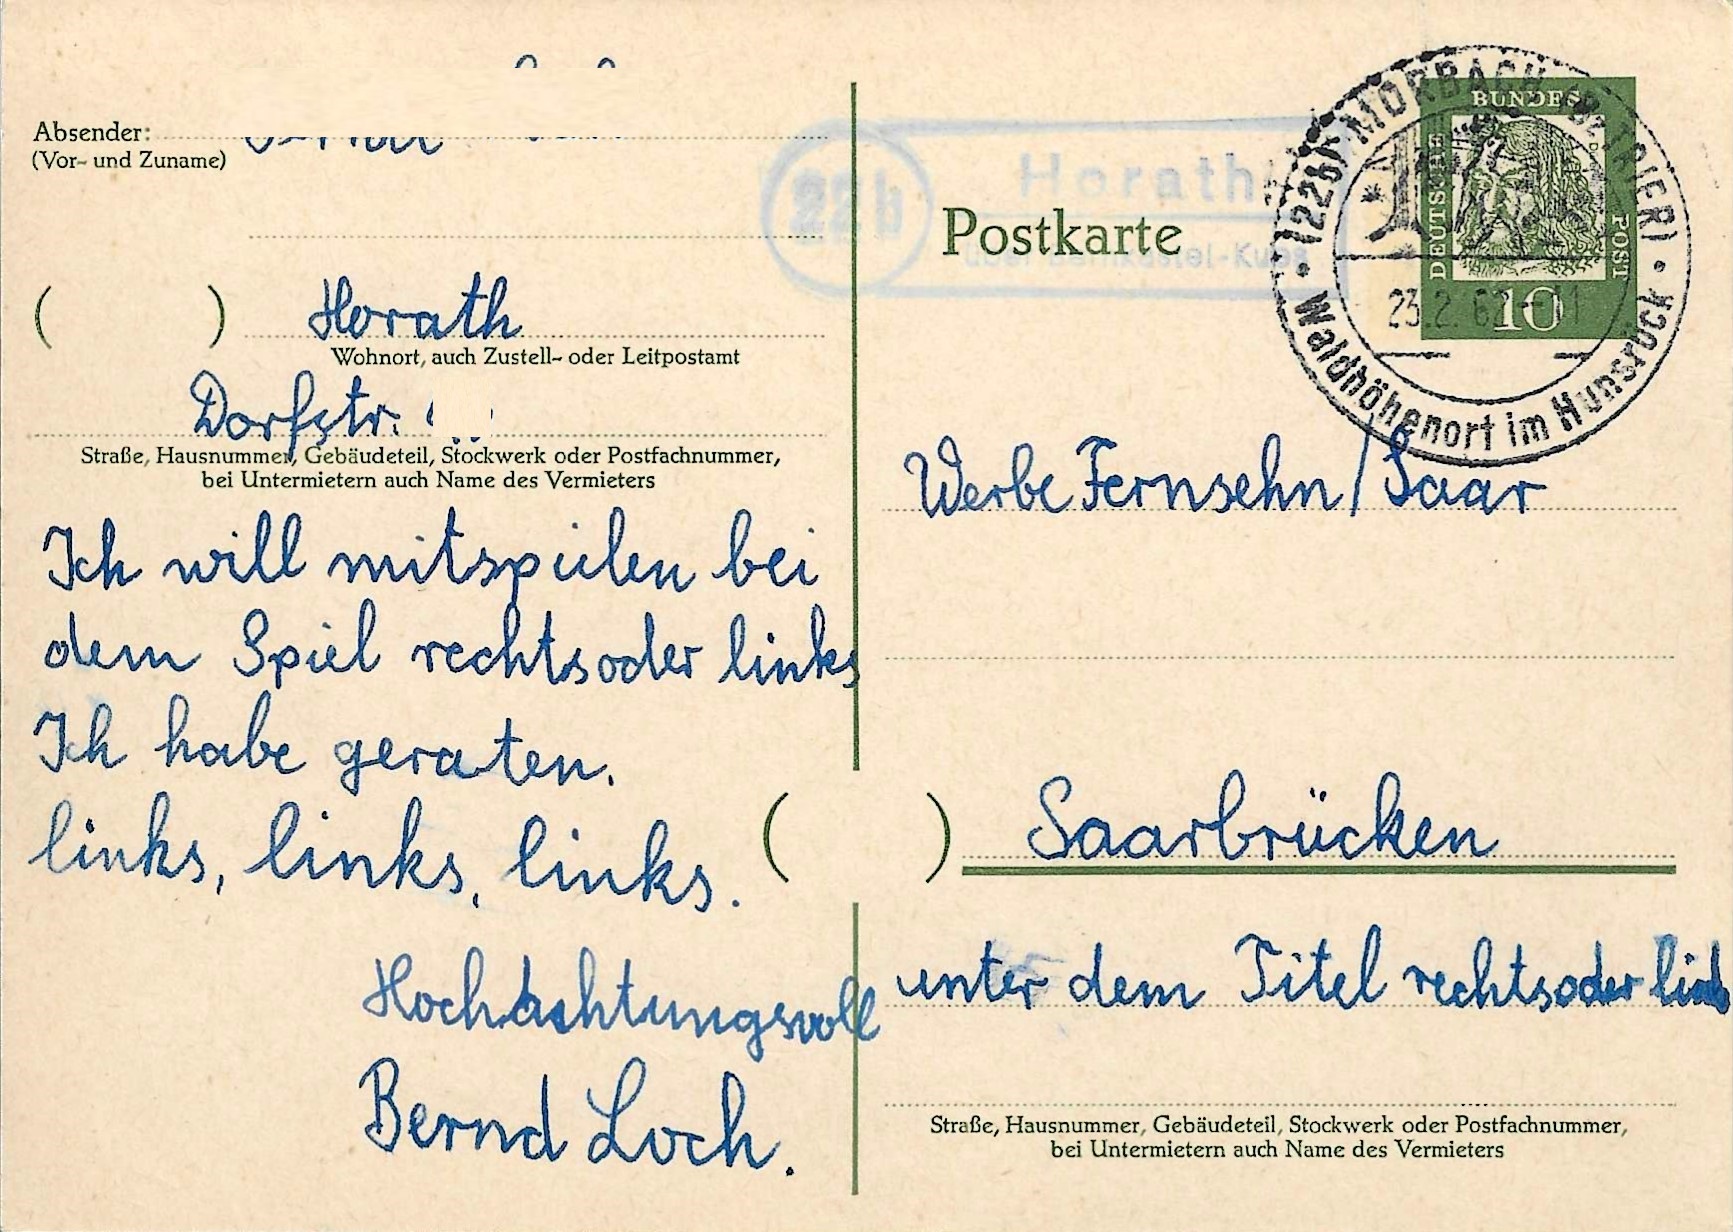 Absender:
(Vor- und Zuname)
( ) Horath
Wohnort, auch Zustell- oder Leitpostamt
Dorfstr.
Straße, Hausnummer, Gebäudeteil, Stockwerk oder Postfachnummer,
bei Untermietern auch Name des Vermieters
Ich will mitspielen bei
dem Spiel rechtsoder links
Ich habe geraten.
links, links, links.
Hochachtungsvoll
Bernd Loch.
22b
Horath
über Bernkastel-Kues
Postkarte
DEUTSCHE
BUNDES
POST
10
(22b) MORBACH (BZ. TRIER)
23.2.62-11
Waldhöhenort im Hunsrück
Werbe Fernsehn/Saar
( ) Saarbrücken
unter dem Titel rechtsoder links
Straße, Hausnummer, Gebäudeteil, Stockwerk oder Postfachnummer,
bei Untermietern auch Name des Vermieters